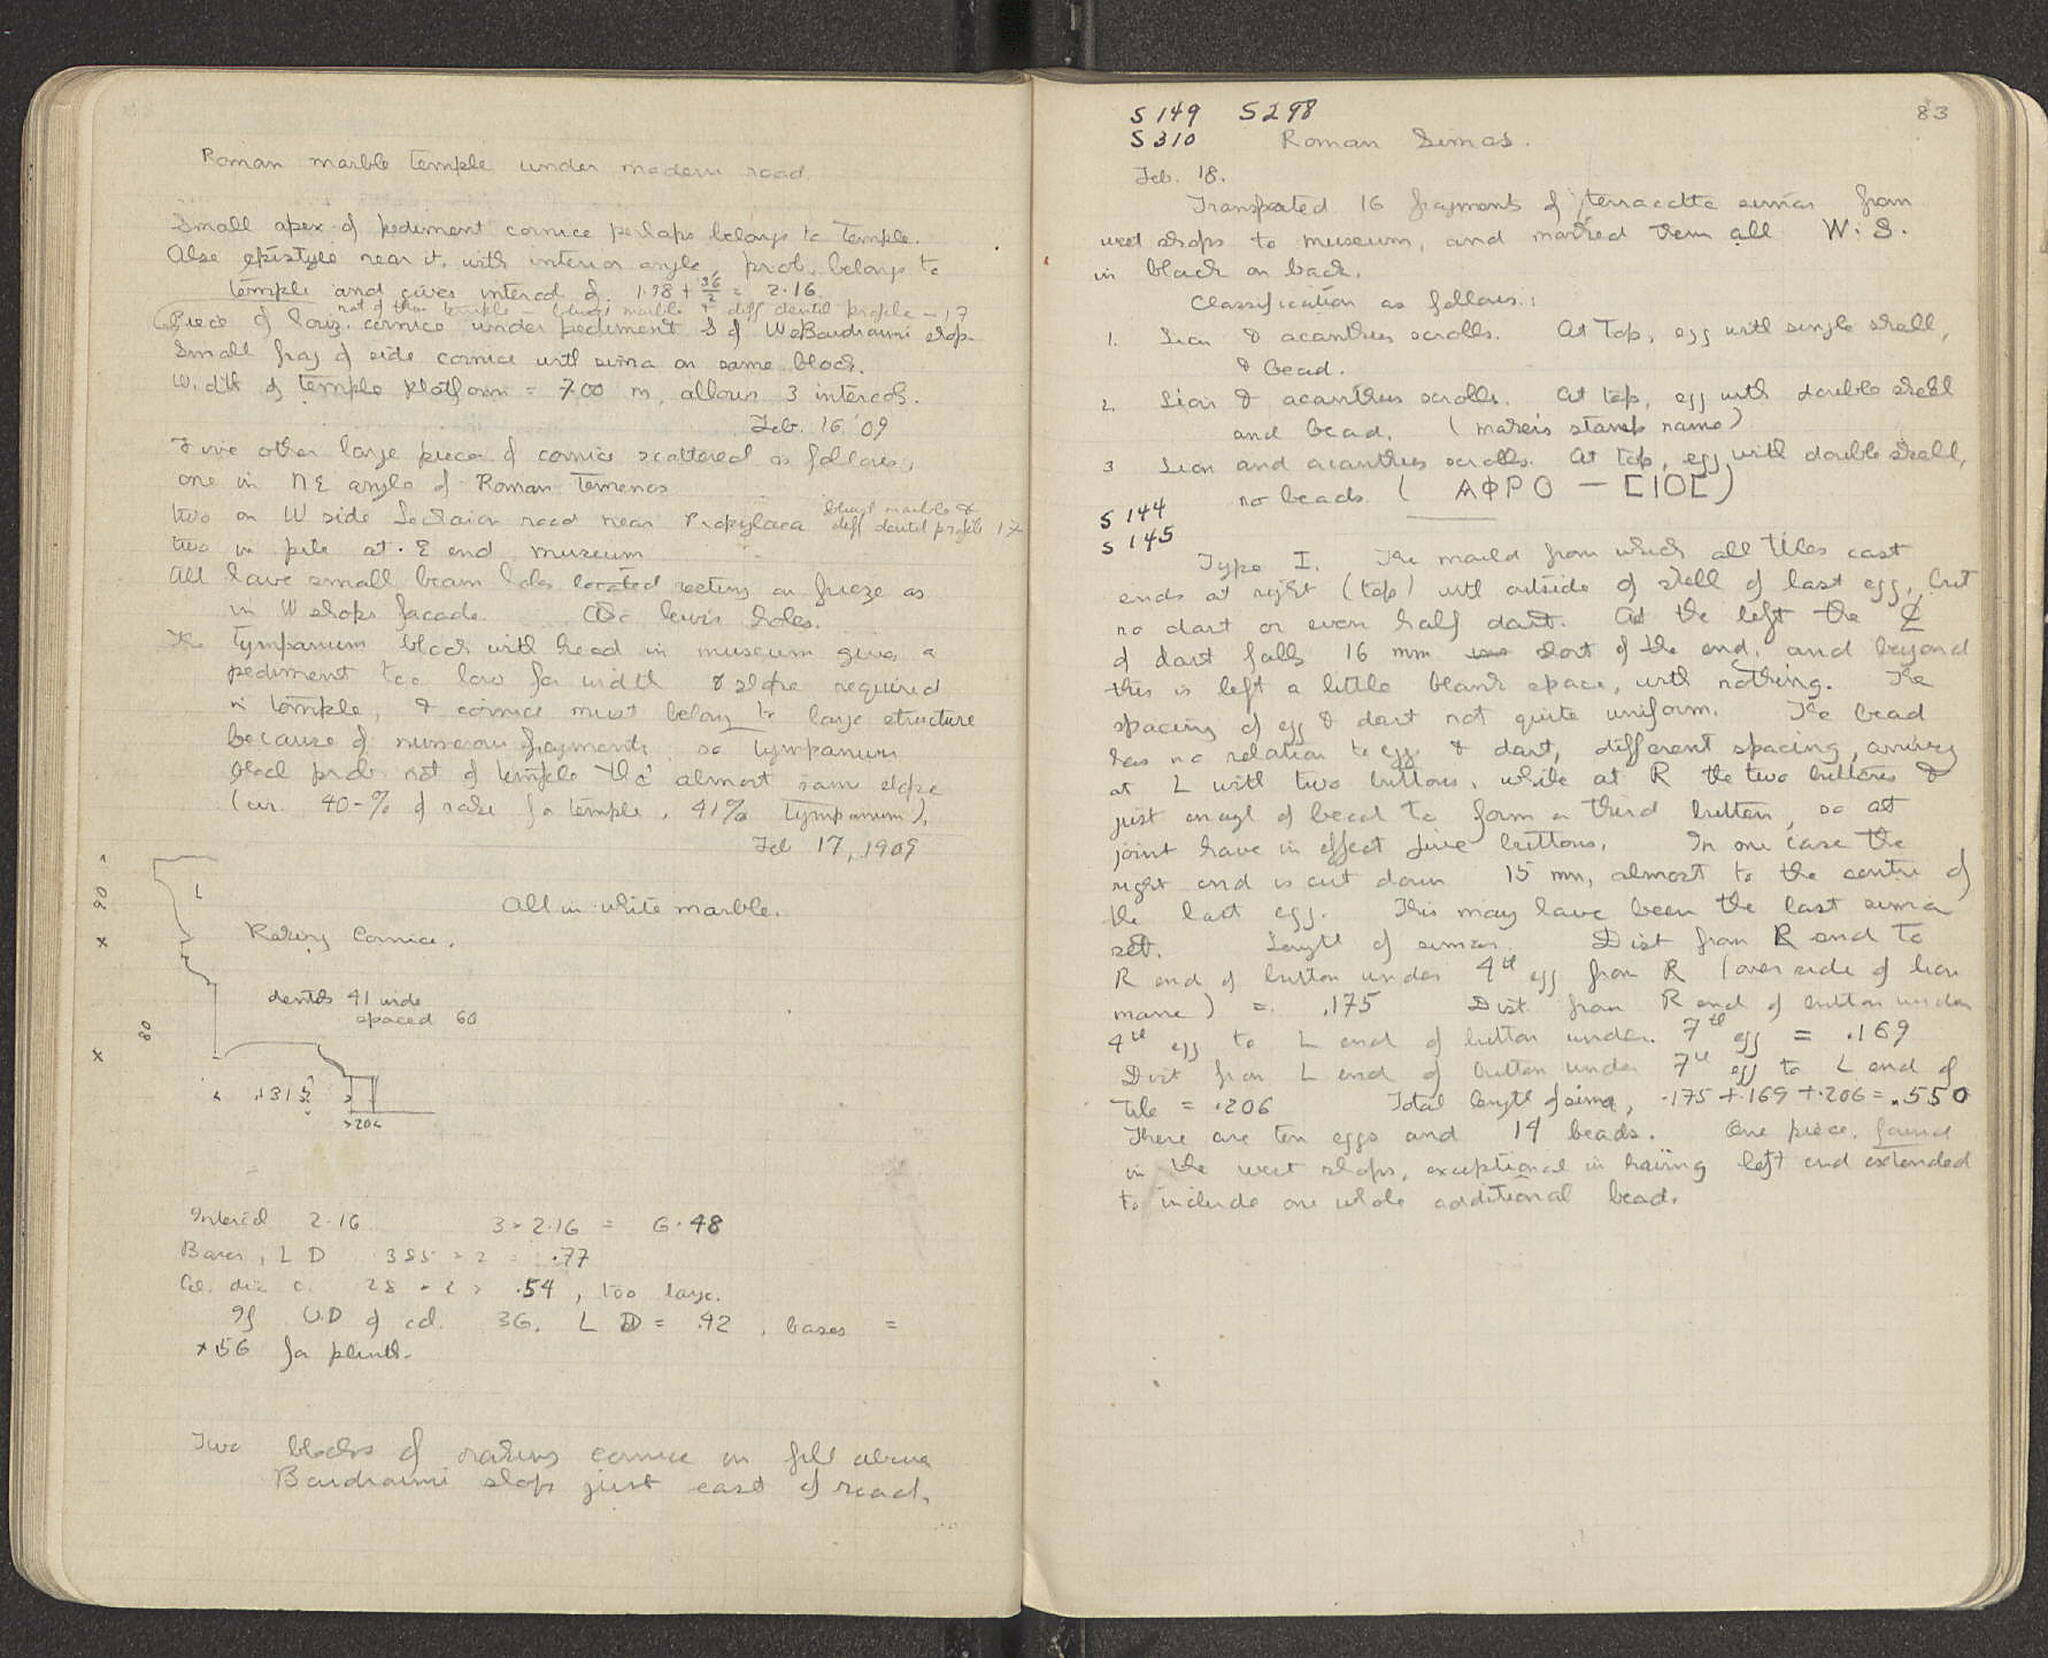 Roman marble temple under modern road
Small apex of pediment cornice perhaps belongs to temple.
Also epistyle near it, with interior angle, prob. belongs to
temple and gives intercol of 1.98 + 36/2 = 2.16
not of this temple – bluish marble & diff dentil profile – 17
Piece of horiz. cornice under pediment S of W Boudroumi shop
Small frag of side cornice with sima on same block.
Width of temple platform = 7.00 m, allows 3 intercols.
Feb. 16 '09
Five other large pieces of cornice scattered as follows,
one in NE angle of Roman Temenos
two on W side Lechaion road near Propylaea bluish marble & diff dentil profile 17
two in pile at E end museum
All have small beam holes located resting on frieze as
in W shops facade. Also lewis holes.
The tympanum block with head in museum gives a
pediment too low for width & slope required
in temple, & cornice must belong to large structure
because of numerous fragments so tympanum
block prob. not of temple tho' almost same slope
(cir. 40-% of rake for temple, 41% tympanum).
Feb 17, 1909
All in white marble.
90
L
Raking Cornice.
dentils 41 wide
spaced 60
80
.131
>20<
Intercol 2.16 3 × 2.16 = 6.48
Bases, L D 385 × 2 = .77
Col. dia c. 28 × 2 = .54, too large.
If U.D of col. 36. L D = .42, bases =
× 56 for plinth.
Two blocks of raking cornice in fill above
Boudroumi shops just east of road.
83
S 149 S 298
S 310 Roman Simas.
Feb. 18.
Transported 16 fragments of terracotta simas from
west shops to museum, and marked them all W. S.
in black on back.
Classification as follows:
1. Lion & acanthus scrolls. At top, egg with single shell,
& bead.
2. Lion & acanthus scrolls. At top, egg with double shell
and bead. (maker's stamp name)
3 Lion and acanthus scrolls. At top, egg with double shell,
no beads. ( ΑΦΡΟ – [ΙΟ[ )
S 144
S 145
Type I. The mould from which all tiles cast
ends at right (top) with outside of shell of last egg, but
no dart or even half dart. At the left the ℄
of dart falls 16 mm short of the end, and beyond
this is left a little blank space, with nothing. The
spacing of egg & dart not quite uniform. The bead
has no relation to egg & dart, different spacing, arriving
at L with two buttons, while at R the two buttons &
just enough of bead to form a third button, so at
joint have in effect five buttons. In one case the
right end is cut down 15 mm, almost to the centre of
the last egg. This may have been the last sima
set. Length of simas. Dist from R end to
R end of button under 4th egg from R (over side of lion
mane) = .175 Dist. from R end of button under
4th egg to L end of button under 7th egg = .169
Dist from L end of button under 7th egg to L end of
tile = .206 Total length of sima, .175 + .169 + .206 = .550
There are ten eggs and 14 beads. One piece, found
in the west shops, exceptional in having left end extended
to include one whole additional bead.